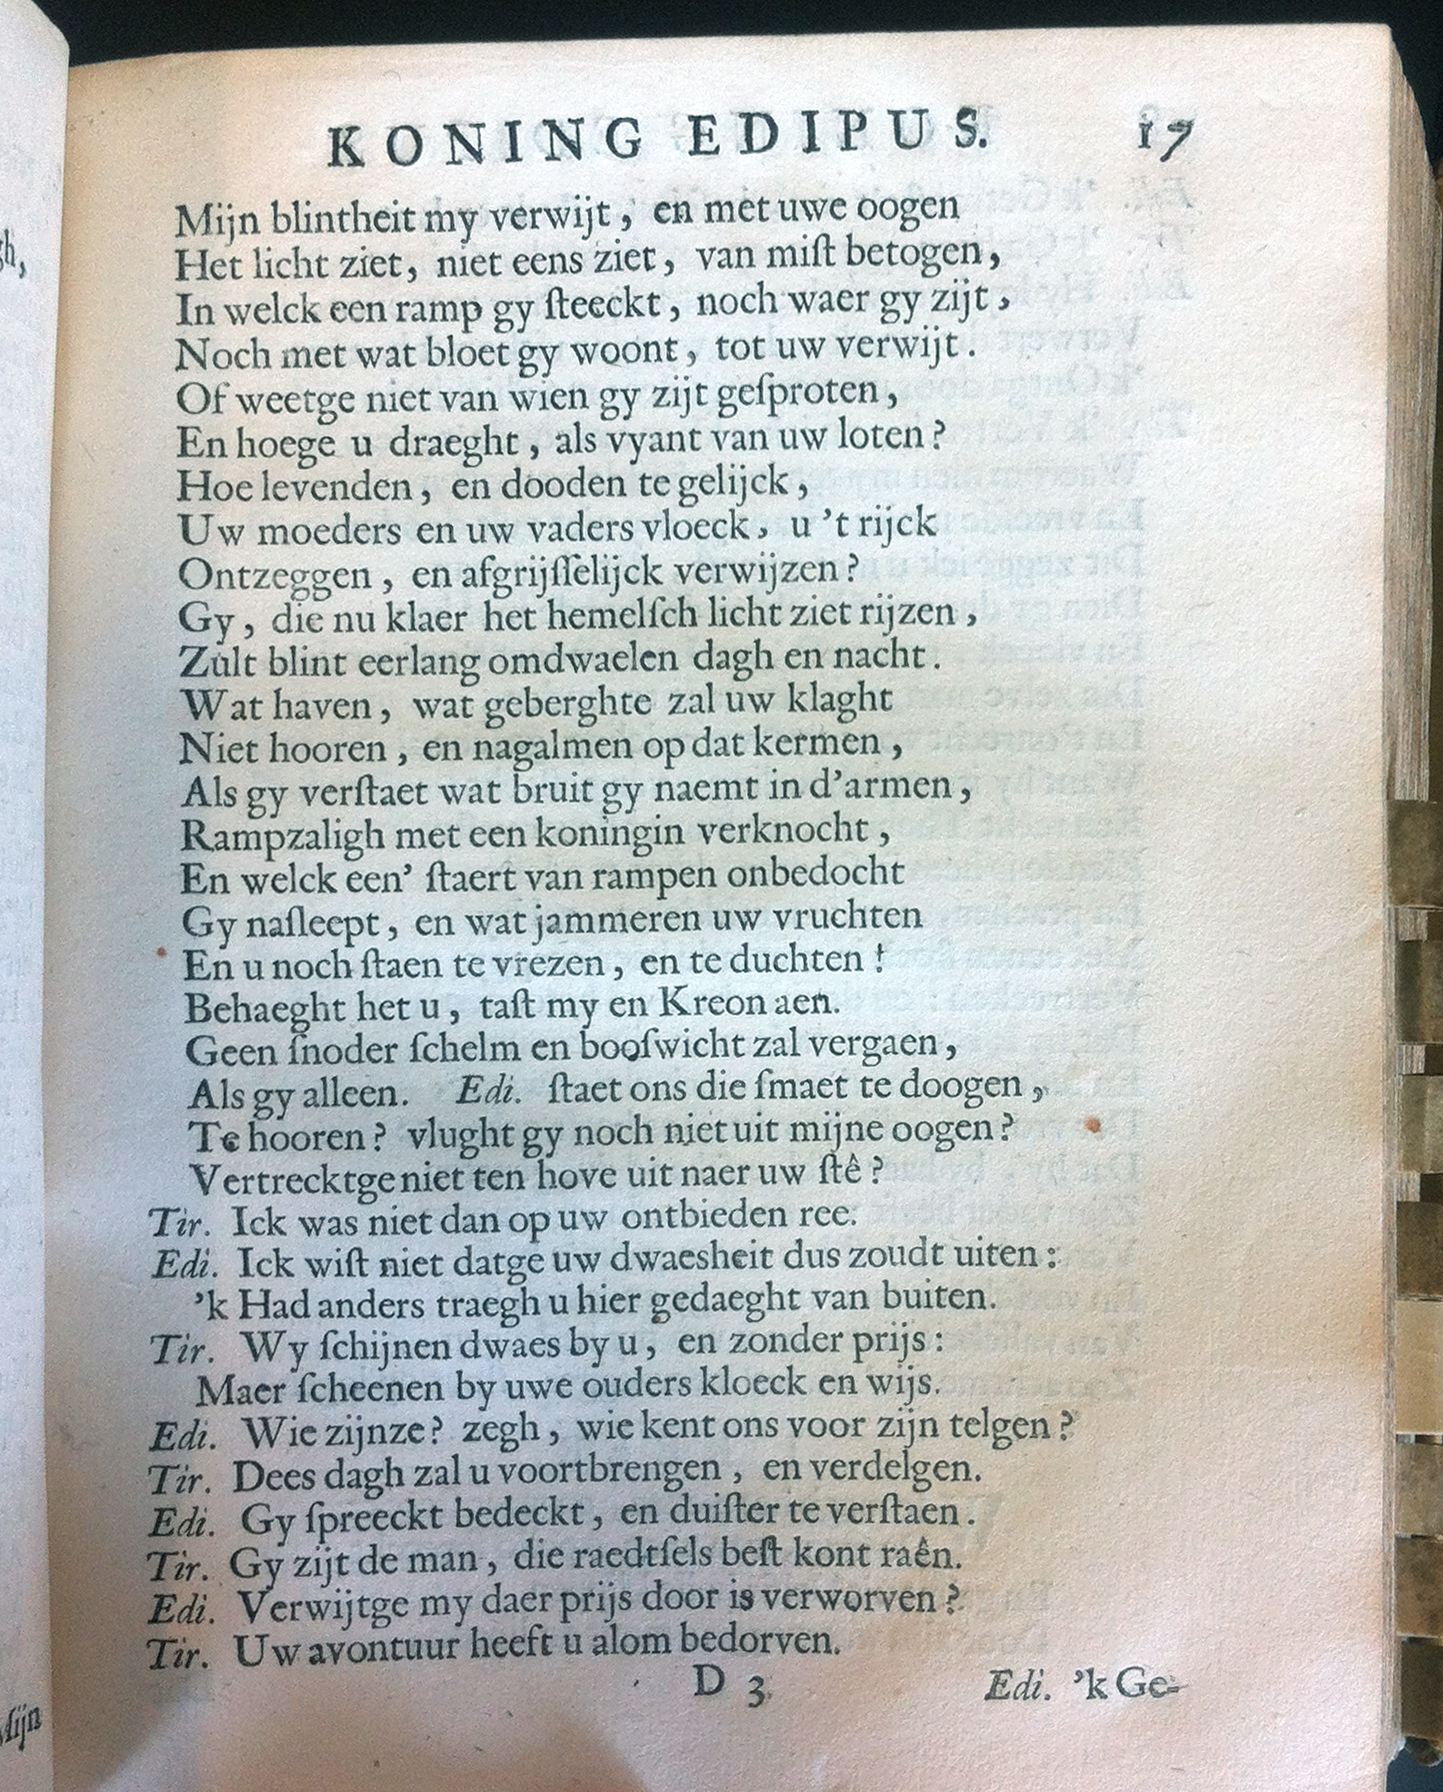 KONING EDIPUS. 17
Mijn blintheit my verwijt, en met uwe oogen
Het licht ziet, niet eens ziet, van miſt betogen,
In welck een ramp gy ſteeckt, noch waer gy zijt,
Noch met wat bloet gy woont, tot uw verwijt.
Of weetge niet van wien gy zijt geſproten,
En hoege u draeght, als vyant van uw loten?
Hoe levenden, en dooden te gelijck,
Uw moeders en uw vaders vloeck, u 't rijck
Ontzeggen, en afgrijſſelijck verwijzen?
Gy, die nu klaer het hemelſch licht ziet rijzen,
Zult blint eerlang omdwaelen dagh en nacht.
Wat haven, wat geberghte zal uw klaght
Niet hooren, en nagalmen op dat kermen,
Als gy verſtaet wat bruit gy naemt in d'armen,
Rampzaligh met een koningin verknocht,
En welck een' ſtaert van rampen onbedocht
Gy naſleept, en wat jammeren uw vruchten
En u noch ſtaen te vrezen, en te duchten!
Behaeght het u, taſt my en Kreon aen.
Geen ſnoder ſchelm en booſwicht zal vergaen,
Als gy alleen. Edi. ſtaet ons die ſmaet te doogen,
Te hooren? vlught gy noch niet uit mijne oogen?
Vertrecktge niet ten hove uit naer uw ſtê?
Tir. Ick was niet dan op uw ontbieden ree.
Edi. Ick wiſt niet datge uw dwaesheit dus zoudt uiten:
'k Had anders traegh u hier gedaeght van buiten.
Tir. Wy ſchijnen dwaes by u, en zonder prijs:
Maer ſcheenen by uwe ouders kloeck en wijs.
Edi. Wie zijnze? zegh, wie kent ons voor zijn telgen?
Tir. Dees dagh zal u voortbrengen, en verdelgen.
Edi. Gy ſpreeckt bedeckt, en duiſter te verſtaen.
Tir. Gy zijt de man, die raedtſels beſt kont raên.
Edi. Verwijtge my daer prijs door is verworven?
Tir. Uw avontuur heeft u alom bedorven.
D 3 Edi. 'k Ge-